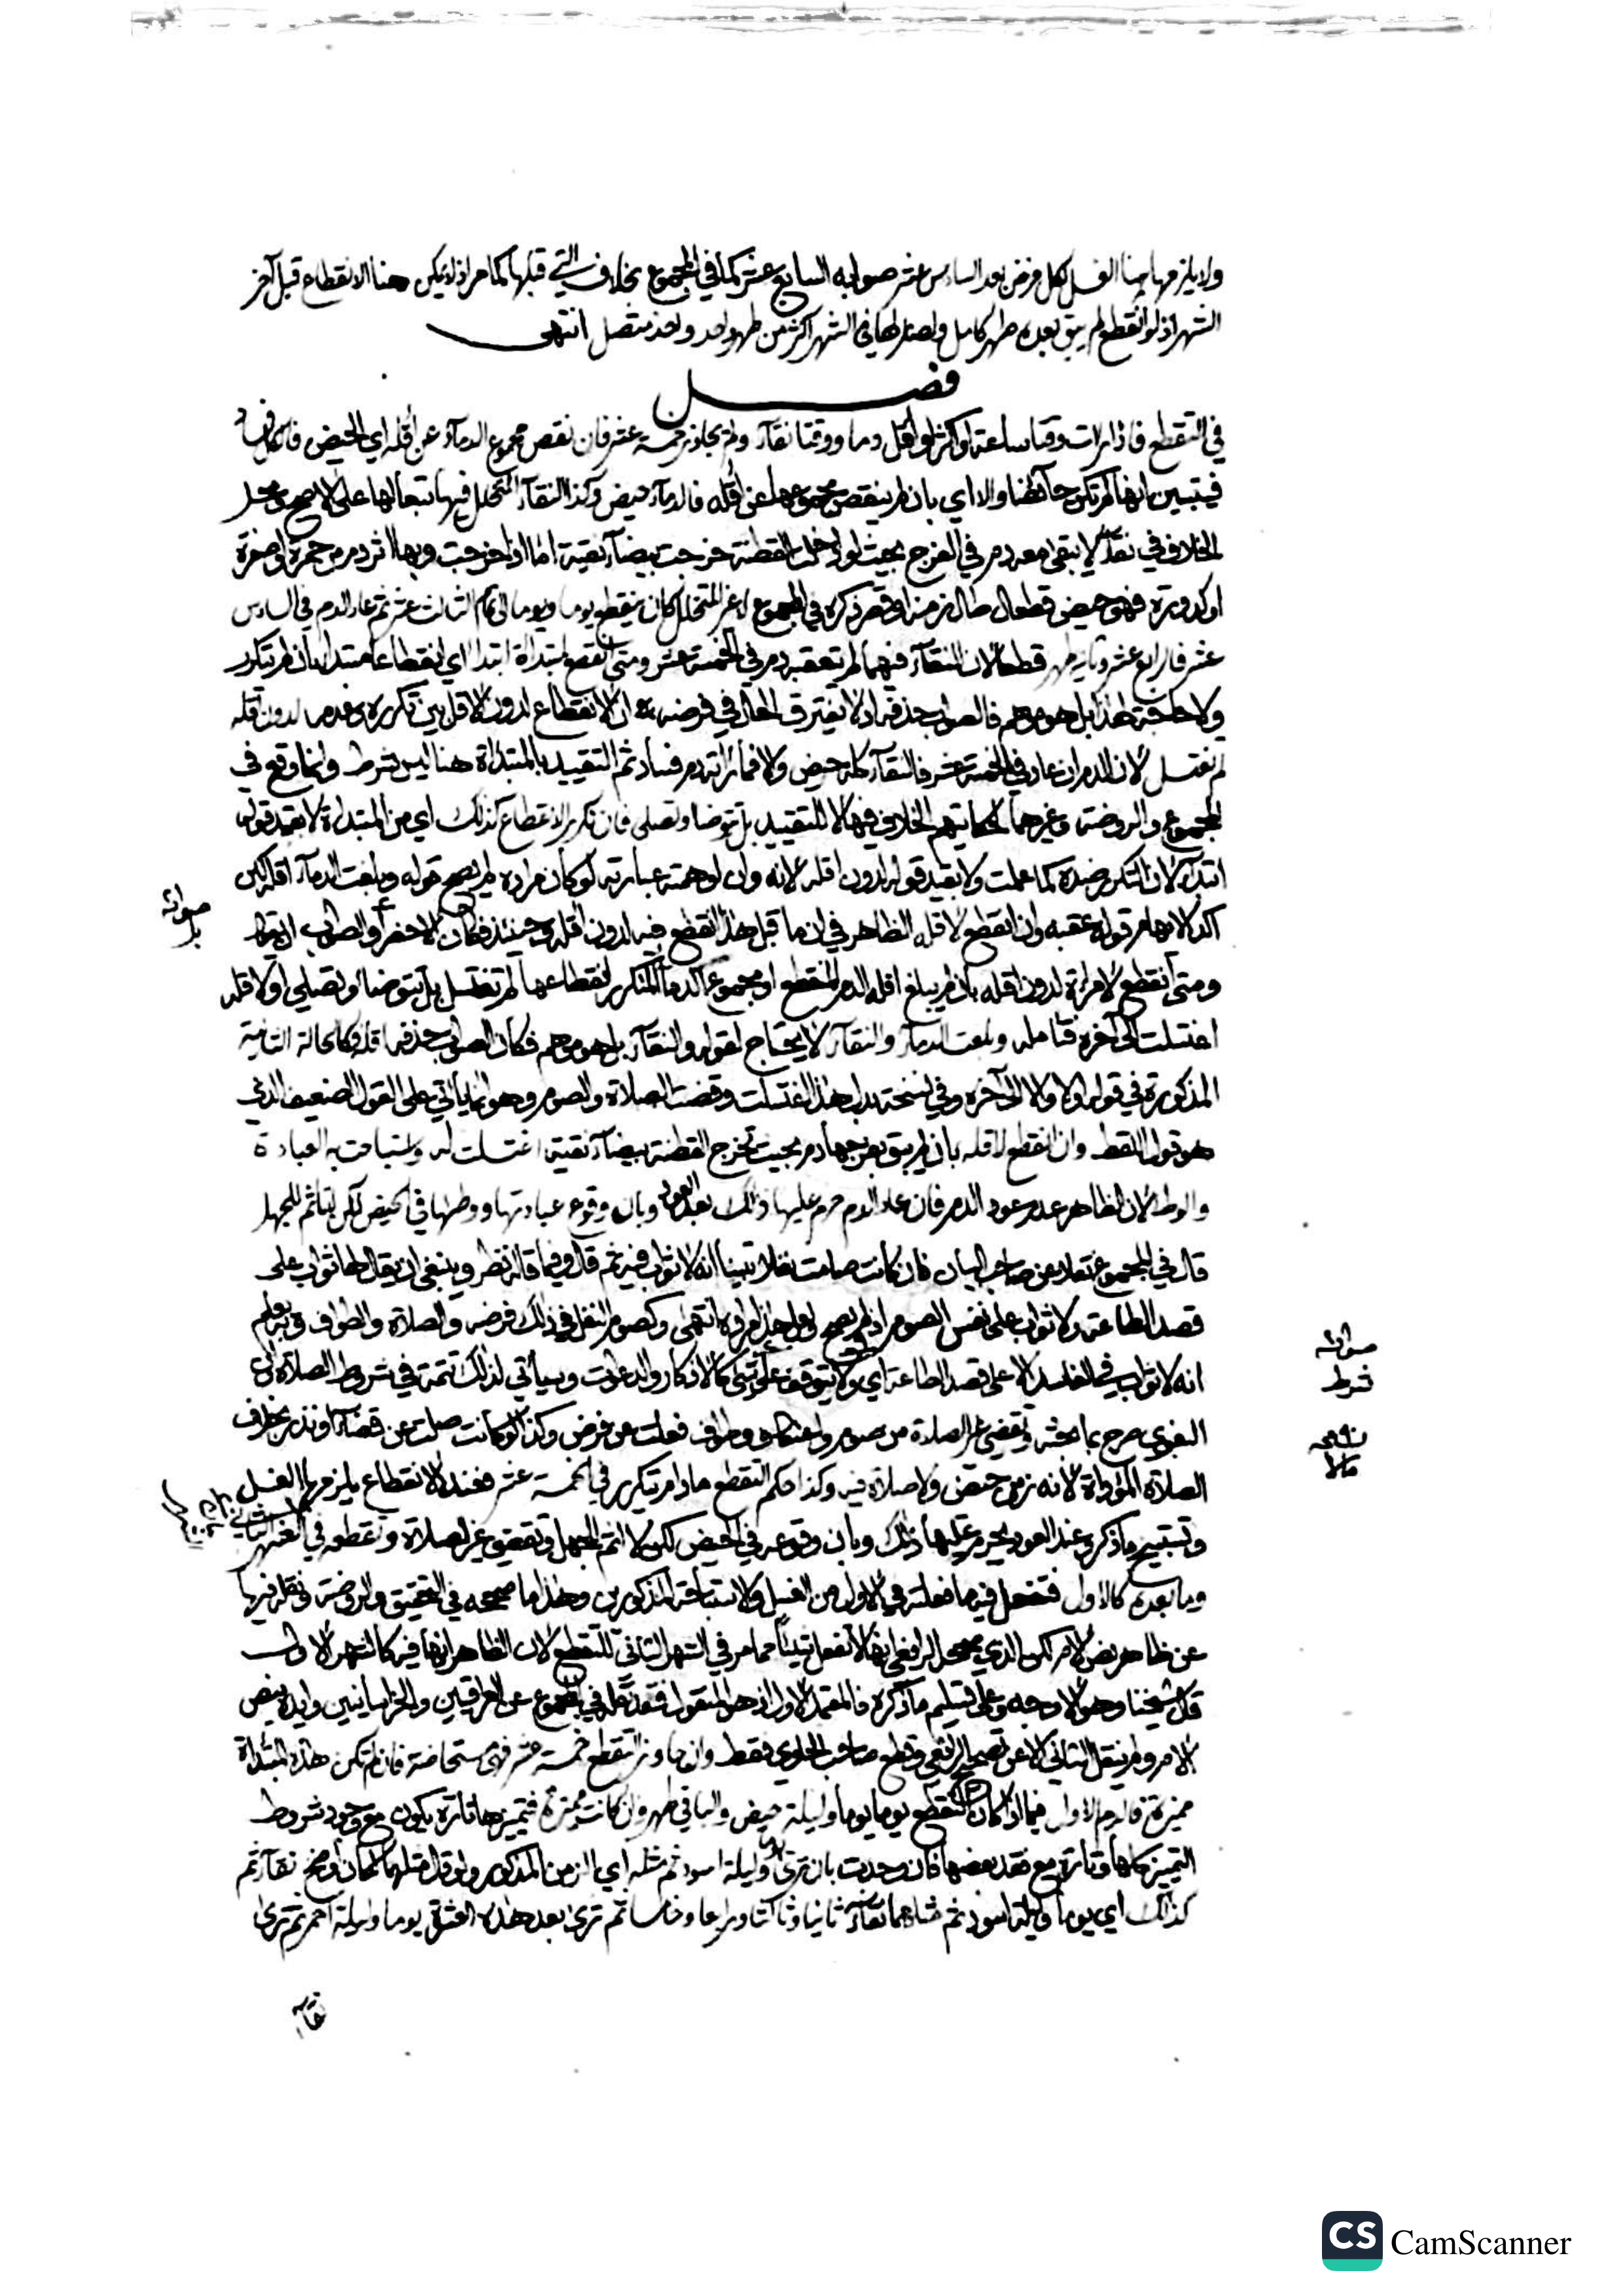 ولا يلزمها هنا الغسل لكل فرض بعد السادس عشر صوابه السابع عشر كما في المجموع بخلاف التي قبلها كما مر اذ لا يمكن هنا الانقطاع قبل آخر
الشهر اذ لو انقطع لم يبق بعده طهر كامل ولصار لها في الشهر اكثر من طهر واحد واحد متصل انتهى
فصل
في التقطع فاذا رات وقتا ساعة او اكثر او اقل دما ووقتا نقاء ولم يجاوز خمسة عشر فان نقص مجموع الدماء عن اقله اي الحيض
فيتبين انها لم تكن حائضا والا اي بان لم ينقص مجموعها عن اقله فالدماء حيض وكذا النقاء المتخلل فيها تبعا لها على الاصح ومحل
الخلاف في نقاء لا يبقى معه دم في الفرج بحيث لو ادخلت القطنة خرجت بيضاء نقية اما اذا خرجت وبها اثر دم من حمرة او صفرة
او كدورة فهو حيض قطعا وان طال زمنه او قصر ذكره في المجموع اما غير المتخلل كان ينقطع يوما ويوما الى تمام الثالث عشر ثم عاد الدم في السادس
عشر فالرابع عشر وتاليه طهر قطعا لان النقاء فيهما لم يتعقبه دم في الخمسة عشر ومتى انقطع لمبتداة ابتدا اي انقطاعا مبتدا بان لم يتكرر
ولا حاجة لهذا بل هو موهم فالصواب حذفه اذ لا يفترق الحال في فرضه ان الانقطاع لدون الاقل بين تكرره وعدمه لدون اقله
لم تغتسل لان الدم ان عاد في الخمسة عشر فالنقاء كله حيض والا فما راته دم فساد ثم التقييد بالمبتداة هنا ليس بشرط وانما وقع في
المجموع والروضة وغيرهما لحكايتهم الخلاف فيها لا للتقييد بل تتوضا وتصلي فان تكرر الانقطاع كذلك اي من المبتداة لا بقيد قوله
ابتداء لان التكرر ضده كما علمت ولا بقيد قوله لدون اقله لانه وان اوهمته عبارته لو كان مراده لم يصح قوله وبلغت الدماء اقله لكن
اكد الايهام قوله عقبه وان انقطع لاقله الظاهر في ان ما قبل هذا انقطع فيه لدون اقله وحينئذ فكان الاخصر والصواب ان يقول
ومتى انقطع لامراة لدون اقله بان لم يبلغ اقله الدم المنقطع او مجموع الدماء المتكرر انقطاعها لم تغتسل بل تتوضا وتصلي او لاقله
اغتسلت الى آخره فتامله وبلغت الدماء والنقاء لا يحتاج لقوله والنقاء بل هو موهم فكان الصواب حذفه اقله فكالحالة الثانية
المذكورة في قوله اولا والا الى آخره وفي نسخة بدل هذا اغتسلت وقضت الصلاة والصوم وهو انما ياتي على القول الضعيف الذي
هو قول اللقط وان انقطع لاقله بان لم يبق بفرجها دم بحيث تخرج القطنة بيضاء نقية اغتسلت له واستباحت به العبادة
والوطء لان الظاهر عدم عود الدم فان عاد الدم حرم عليها ذلك بعد العود وبان وقوع عبادتها ووطئها في الحيض لكن لا تاثم للجهل
قال في المجموع نقلا عن صاحب البيان فان كانت صامت نفلا تبينا انه لا ثواب فيه ثم قال وفيما قاله نظر وينبغي ان يقال لها ثواب على
قصد الطاعة ولا ثواب على نفس الصوم اذ لم يصح ولعل هذا مراده انتهى وكصوم النفل في ذلك فرضه والصلاة والطواف وبه يعلم
انه لا ثواب في الفاسد الا على قصد الطاعة اي ولا يتوقف على شيء كالاذكار والدعوات وسياتي لذلك تتمة في شروط الصلاة راى
البغوي صرح بما بحثته وتقضي غير الصلاة من صوم واعتكاف وطواف فعلت عن فرض وكذا لو كانت صلت عن قضاء او نذر بخلاف
الصلاة المؤداة لانه زمن حيض ولا صلاة فيه وكذا حكم التقطع ما دام يتكرر في الخمسة عشر فعند الانقطاع يلزمها الغسل
وتستبيح ما ذكر وعند العود يحرم عليها ذلك وبان وقوعه في الحيض لكن لا اثم للجهل وتقضي غير الصلاة وتقطعه في الشهر الثاني
وما بعده كالاول فتفعل فيهما فعلته في الاول من الغسل والاستباحة المذكورين وهذا ما صححه في التحقيق والروضة ونقله فيها
عن ظاهر نص الام لكن الذي صححه الرافعي انها لا تفعل شيئا مما مر في الشهر الثاني للتقطع لان الظاهر انها فيه كالشهر الاول
قال شيخنا وهو الاوجه وعلى تسليم ما ذكره فالمعتمد الاول اذ هو المنقول فقد نقله في المجموع عن العراقيين والخراسانيين وايده بنص
الام ولم ينقل الثاني الا عن تصحيح الرافعي وقطع صاحب الحاوي فقط وان جاوز التقطع خمسة عشر فهي مستحاضة فان لم تكن هذه المبتداة
مميزة فالدم الاول فيما اذا كان التقطع يوما يوما وليلة حيض والباقي طهر وان كانت مميزة فتمييزها تارة يكون مع وجود شروط
التمييز كلها وتارة مع فقد بعضها فان وجدت بان ترى يوما وليلة اسود ثم مثله اي الزمن المذكور ولو قال مثلهما لكان اوضح نقاء ثم
كذلك اي يوما وليلة اسود ثم مثلهما نقاء ثانيا وثالثا ورابعا وخامسا ثم ترى بعد هذه العشرة يوما وليلة احمر ثم ترى
نقاء
صوابه
بل
صوابه
شرط
نسخة